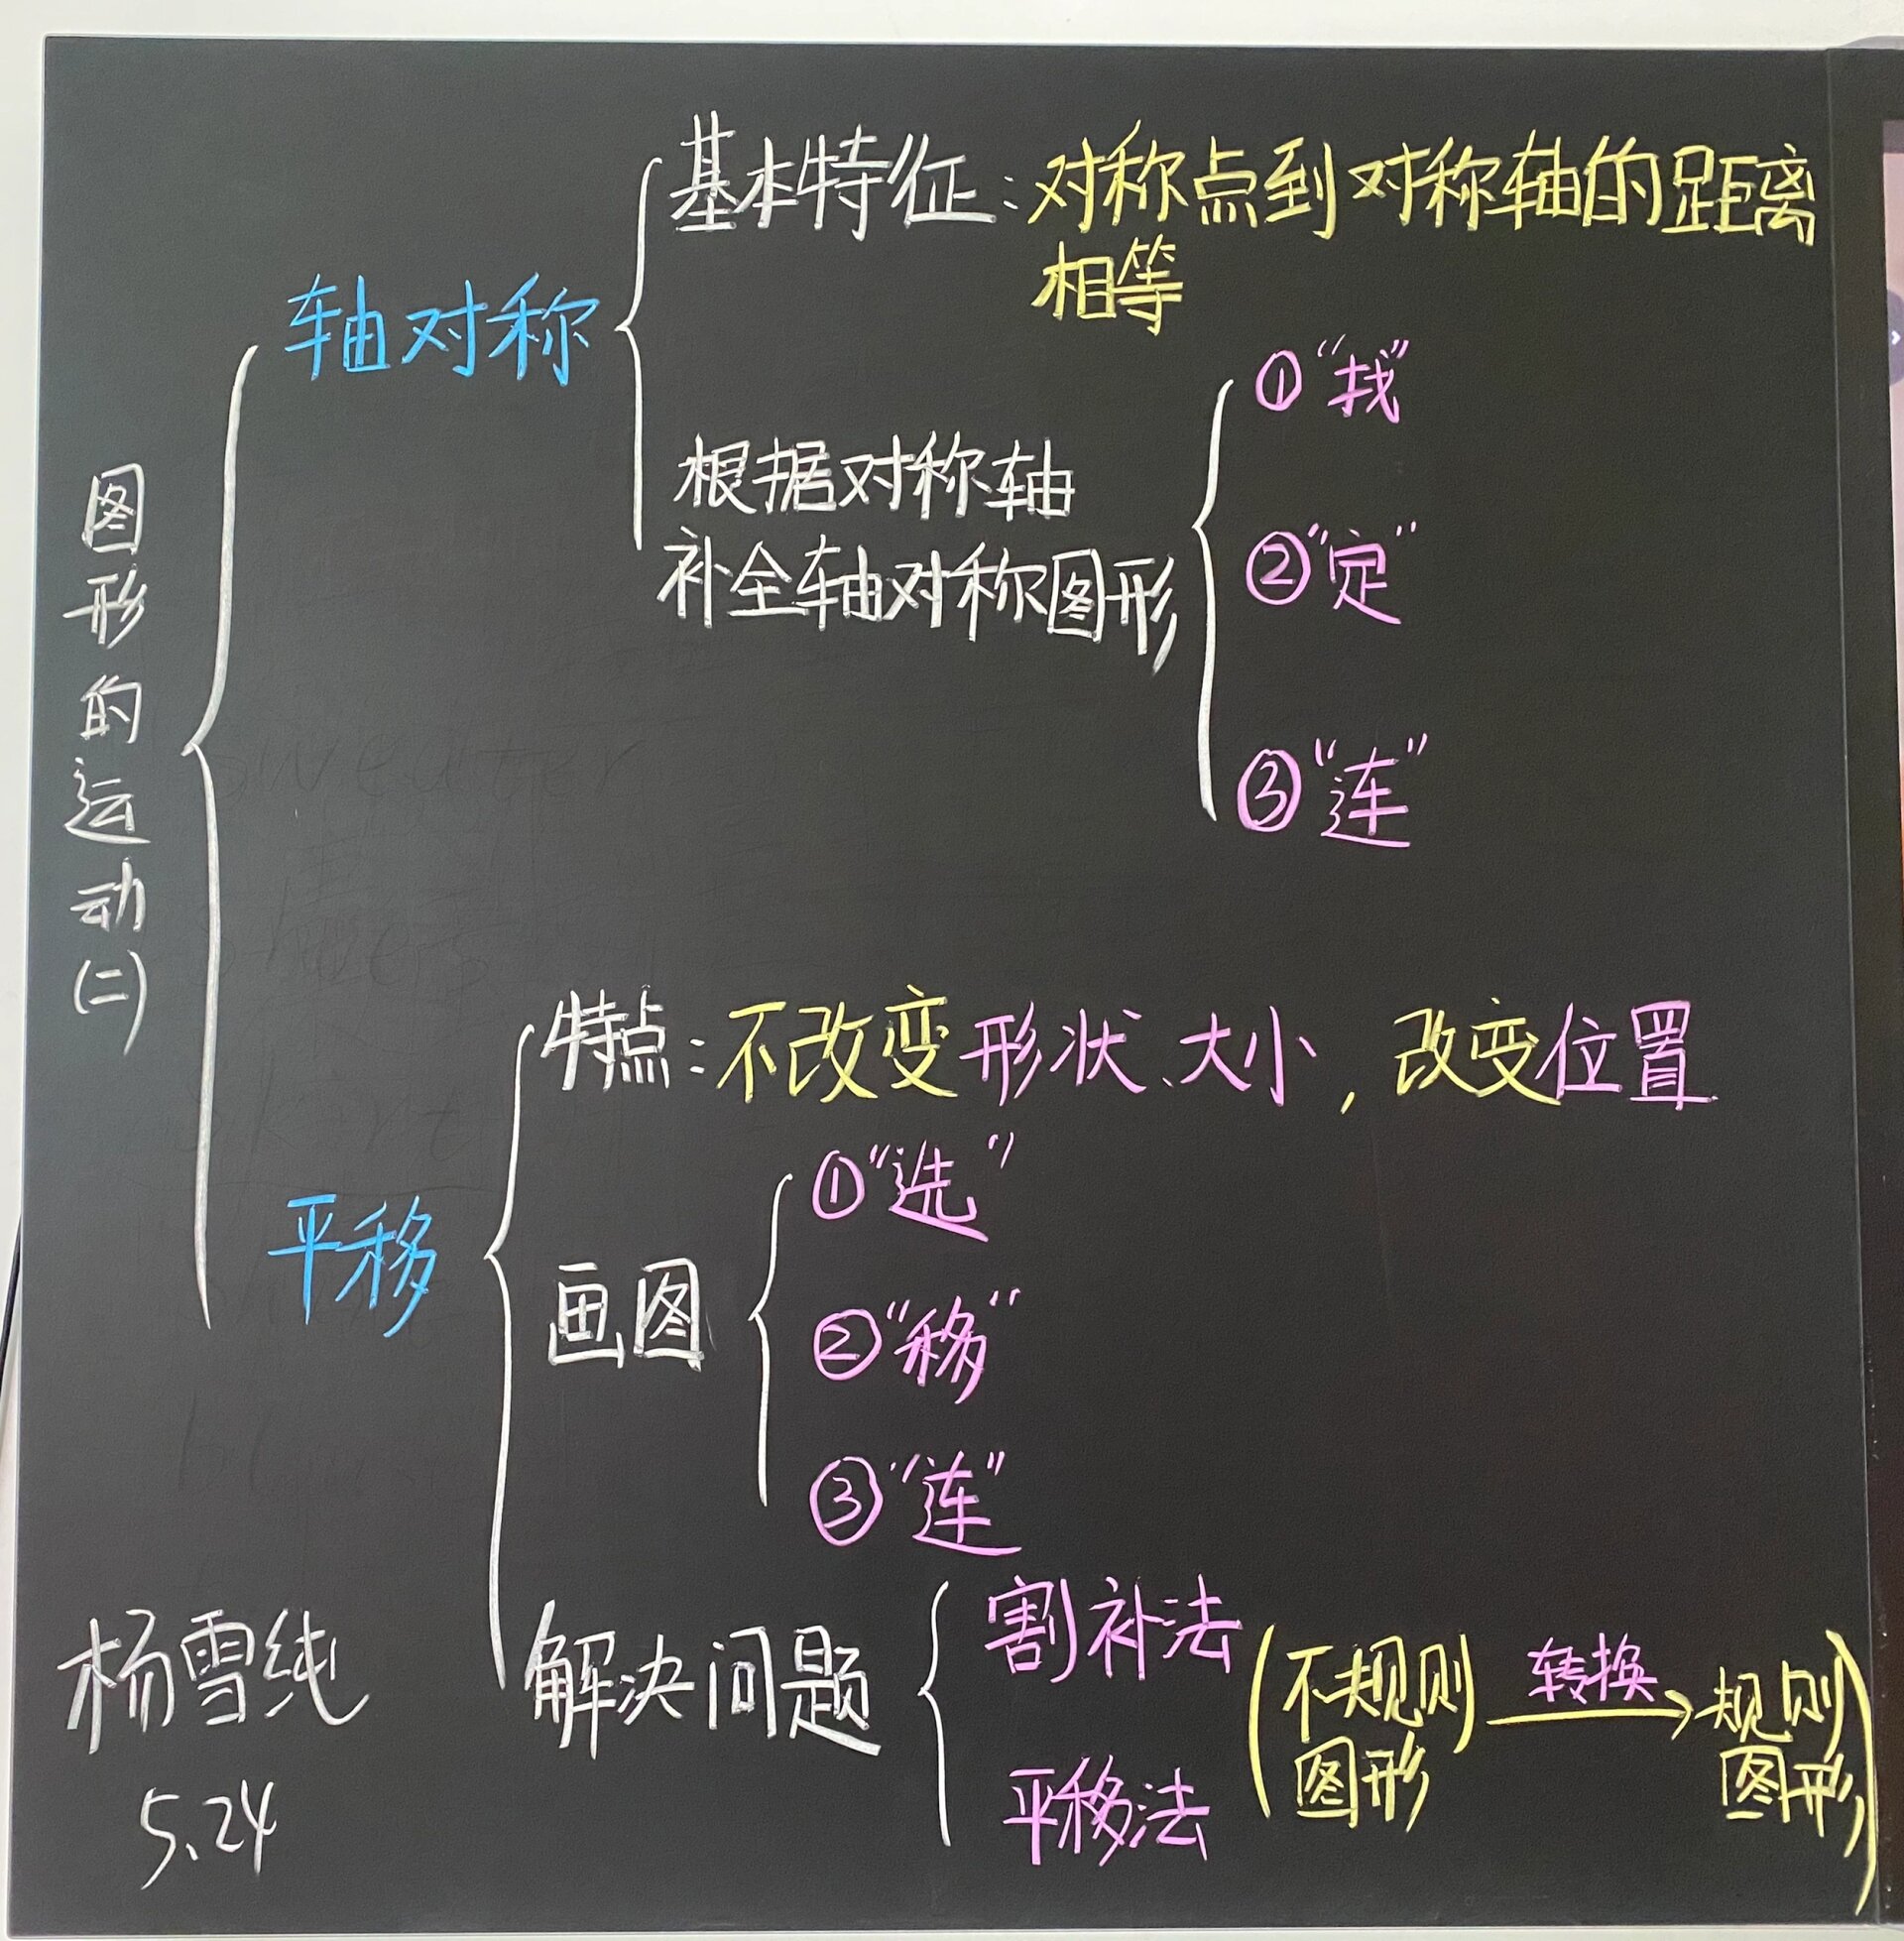 图形的运动(二)
轴对称
基本特征：对称点到对称轴的距离
相等
根据对称轴
补全轴对称图形
①“找”
②“定”
③“连”
平移
特点：不改变形状、大小，改变位置
画图
①“选”
②“移”
③“连”
解决问题
割补法
平移法
(不规则
图形
转换
规则
图形)
杨雪纯
5.24